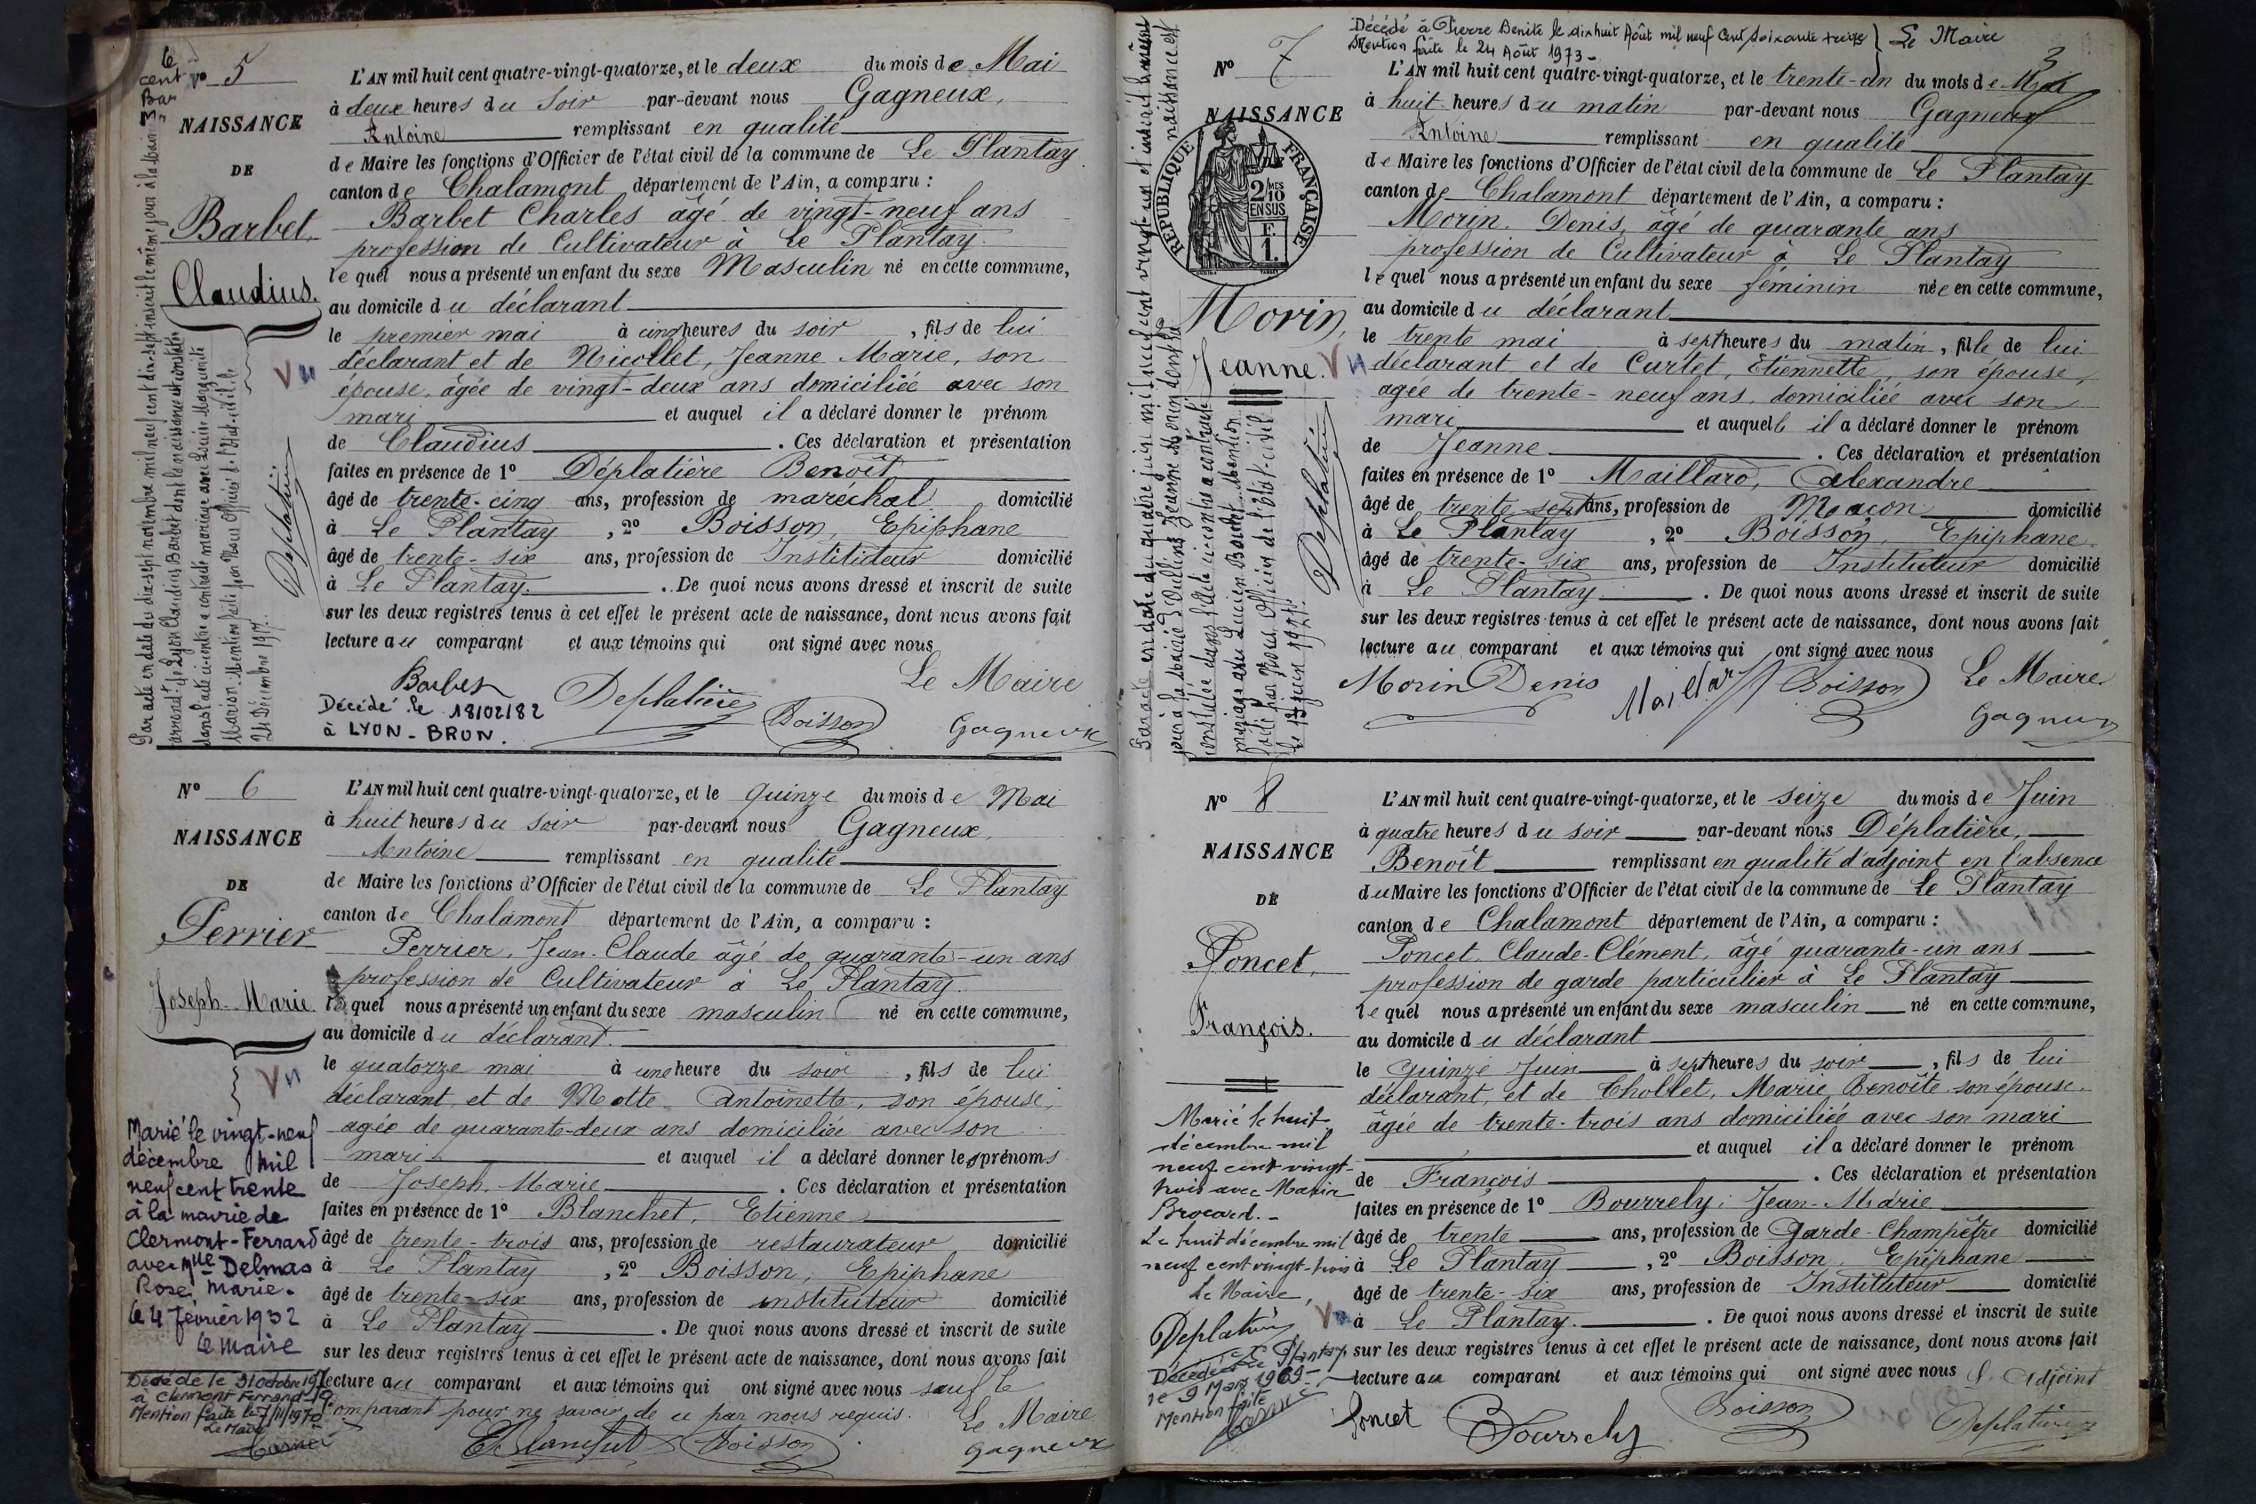 Nº 5
NAISSANCE
DE
Barbet
Claudius.
Vu
L'AN mil huit cent quatre-vingt-quatorze, et le deux du mois de Mai
à deux heures du soir par-devant nous Gagneux,
Antoine remplissant en qualité
de Maire les fonctions d'Officier de l'état civil de la commune de Le Plantay
canton de Chalamont département de l'Ain, a comparu :
Barbet Charles âgé de vingt-neuf ans
profession de Cultivateur à Le Plantay
lequel nous a présenté un enfant du sexe Masculin né en cette commune,
au domicile du déclarant
le premier mai à cinq heures du soir, fils de lui
déclarant et de Nicollet, Jeanne Marie, son
épouse, âgée de vingt-deux ans domiciliée avec son
mari et auquel il a déclaré donner le prénom
de Claudius. Ces déclaration et présentation
faites en présence de 1º Déplatière Benoît
âgé de trente-cinq ans, profession de maréchal domicilié
à Le Plantay, 2º Boisson, Epiphane
âgé de trente-six ans, profession de Instituteur domicilié
à Le Plantay. De quoi nous avons dressé et inscrit de suite
sur les deux registres tenus à cet effet le présent acte de naissance, dont nous avons fait
lecture au comparant et aux témoins qui ont signé avec nous
Barbet Deplatière Boisson Le Maire
Gagneux
Décédé le 18/02/82
à LYON-BRON.
Par acte en date du dix-sept novembre mil neuf cent dix-sept inscrit le même jour à la mairie
arrondt de Lyon Claudius Barbet dont la naissance est constatée
dans l'acte ci-contre a contracté mariage avec Louise Marguerite
Marion. Mention faite par Nous Officier de l'Etat-civil le
24 Décembre 1917.
Deplatière
Nº 6
NAISSANCE
DE
Perrier
Joseph-Marie
Vu
L'AN mil huit cent quatre-vingt-quatorze, et le quinze du mois de Mai
à huit heures du soir par-devant nous Gagneux,
Antoine remplissant en qualité
de Maire les fonctions d'Officier de l'état civil de la commune de Le Plantay
canton de Chalamont département de l'Ain, a comparu :
Perrier, Jean-Claude âgé de quarante-un ans
profession de Cultivateur à Le Plantay.
lequel nous a présenté un enfant du sexe masculin né en cette commune,
au domicile du déclarant.
le quatorze mai à une heure du soir, fils de lui
déclarant et de Motte Antoinette, son épouse,
âgée de quarante-deux ans domiciliée avec son
mari et auquel il a déclaré donner les prénoms
de Joseph, Marie. Ces déclaration et présentation
faites en présence de 1º Blanchet, Etienne
âgé de trente-trois ans, profession de restaurateur domicilié
à Le Plantay, 2º Boisson, Epiphane
âgé de trente-six ans, profession de instituteur domicilié
à Le Plantay. De quoi nous avons dressé et inscrit de suite
sur les deux registres tenus à cet effet le présent acte de naissance, dont nous avons fait
lecture au comparant et aux témoins qui ont signé avec nous sauf le
comparant pour ne savoir de ce par nous requis. Le Maire
Blanchet Boisson Gagneux
Marié le vingt-neuf
décembre mil
neuf cent trente
à la mairie de
Clermont-Ferrand
avec Mlle Delmas
Rose Marie.
le 4 février 1932
Le Maire
Décédé le 31 octobre 19
à Clermont Ferrand
Mention faite le 7/11/1970
Le Maire
Nº 7
NAISSANCE
RÉPUBLIQUE FRANÇAISE
2 MES
10
EN SUS
F.
1.
Morin,
Jeanne.
Vu
Décédé à Pierre Benite le dix huit Août mil neuf Cent soixante treize
Mention faite le 24 Août 1973 - Le Maire
3
L'AN mil huit cent quatre-vingt-quatorze, et le trente-un du mois de Mai
à huit heures du matin par-devant nous Gagneux
Antoine remplissant en qualité
de Maire les fonctions d'Officier de l'état civil de la commune de Le Plantay
canton de Chalamont département de l'Ain, a comparu :
Morin. Denis, âgé de quarante ans
profession de Cultivateur à Le Plantay
lequel nous a présenté un enfant du sexe féminin née en cette commune,
au domicile du déclarant
le trente mai à sept heures du matin, fille de lui
déclarant et de Curtet, Etiennette, son épouse,
âgée de trente-neuf ans, domiciliée avec son
mari et auquel il a déclaré donner le prénom
de Jeanne. Ces déclaration et présentation
faites en présence de 1º Maillard, Alexandre
âgé de trente-sept ans, profession de Maçon domicilié
à Le Plantay, 2º Boisson, Epiphane
âgé de trente-six ans, profession de Instituteur domicilié
à Le Plantay. De quoi nous avons dressé et inscrit de suite
sur les deux registres tenus à cet effet le présent acte de naissance, dont nous avons fait
lecture au comparant et aux témoins qui ont signé avec nous
Morin Denis Maillard Boisson Le Maire
Gagneux
Par acte en date du quatre juin mil neuf cent vingt-un et inscrit le même
jour à la mairie d'Oullins Jeanne Morin dont la naissance est
constatée dans l'acte ci-contre a contracté
mariage avec Lucien Mention
faite par Nous Officier de l'Etat-civil
le 13 juin 1921.
Deplatière
Nº 8
NAISSANCE
DE
Poncet,
François.
L'AN mil huit cent quatre-vingt-quatorze, et le seize du mois de Juin
à quatre heures du soir par-devant nous Déplatière,
Benoît remplissant en qualité d'adjoint en l'absence
du Maire les fonctions d'Officier de l'état civil de la commune de Le Plantay
canton de Chalamont département de l'Ain, a comparu :
Poncet, Claude-Clément, âgé quarante-un ans
profession de garde particulier à Le Plantay
lequel nous a présenté un enfant du sexe masculin né en cette commune,
au domicile du déclarant
le quinze Juin à sept heures du soir, fils de lui
déclarant, et de Chollet, Marie Benoîte son épouse.
âgée de trente-trois ans domiciliée avec son mari
et auquel il a déclaré donner le prénom
de François. Ces déclaration et présentation
faites en présence de 1º Bourrely, Jean-Marie
âgé de trente ans, profession de Garde-Champêtre domicilié
à Le Plantay, 2º Boisson, Epiphane
âgé de trente-six ans, profession de Instituteur domicilié
à Le Plantay. De quoi nous avons dressé et inscrit de suite
sur les deux registres tenus à cet effet le présent acte de naissance, dont nous avons fait
lecture au comparant et aux témoins qui ont signé avec nous L'Adjoint
Poncet Bourrely Boisson Deplatière
Marié le huit
décembre mil
neuf cent vingt-
trois avec Maria
Brocard.-
Le huit décembre mil
neuf cent vingt-trois
Le Maire,
Vu
Deplatière
Décédé à Le Plantay
le 9 Mars 1969-
Mention faite